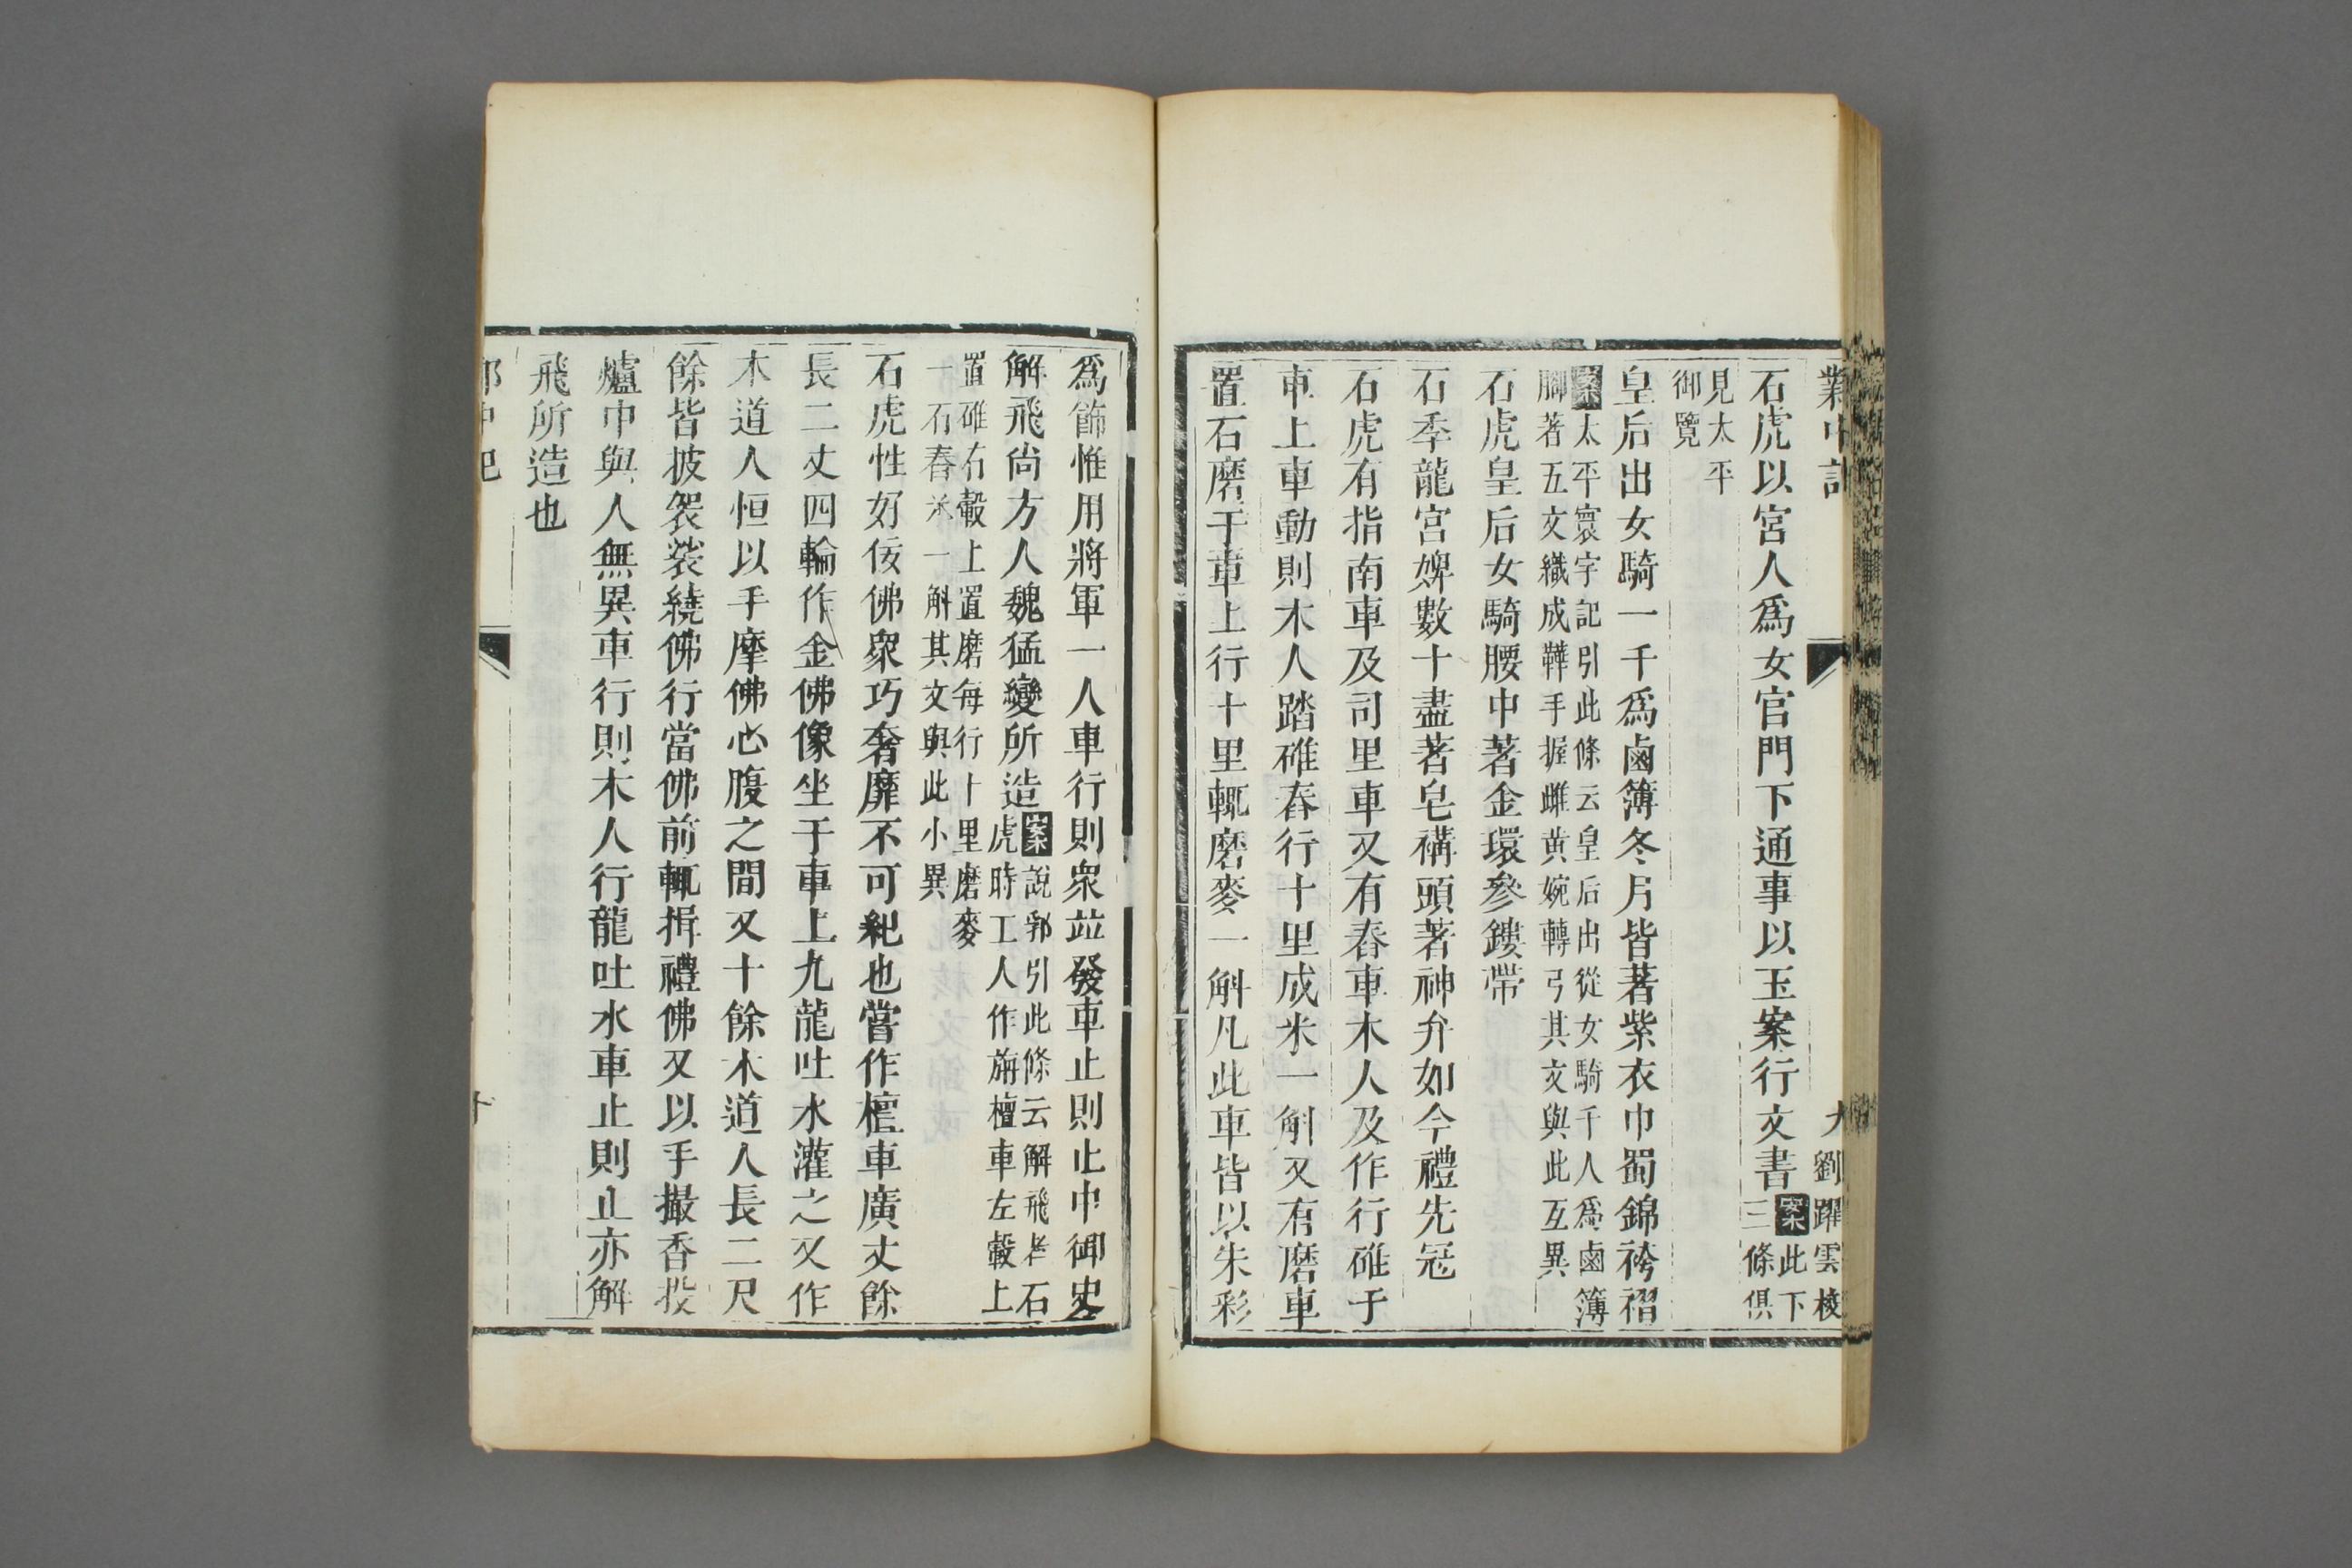 劉躍雲校
石虎以宮人爲女官門下通事以玉案行文書案此下三條俱
見太平御覽
皇后出女騎一千爲鹵簿冬月皆著紫衣巾蜀錦袴褶
案太平寰宇記引此條云皇后出從女騎千人爲鹵簿
腳著五文織成鞾手握雌黃婉轉弓其文與此互異
石虎皇后女騎腰中著金環參鏤帶
石季龍宮婢數十盡著皂褠頭著神弁如今禮先冠
石虎有指南車及司里車又有舂車木人及作行碓于
車上車動則木人踏碓舂行十里成米一斛又有磨車
置石磨于車上行十里輒磨麥一斛凡此車皆以朱彩
爲飾惟用將軍一人車行則衆竝發車止則止中御史
解飛尙方人魏猛變所造案說郛引此條云解飛者石
虎時工人作旃檀車左轂上
置碓右轂上置磨每行十里磨麥
一石舂米一斛其文與此小異
石虎性好佞佛衆巧奢靡不可紀也嘗作檀車廣丈餘
長二丈四輪作金佛像坐于車上九龍吐水灌之又作
木道人恒以手摩佛心腹之間又十餘木道人長二尺
餘皆披袈裟繞佛行當佛前輒揖禮佛又以手撮香投
爐中與人無異車行則木人行龍吐水車止則止亦解
飛所造也